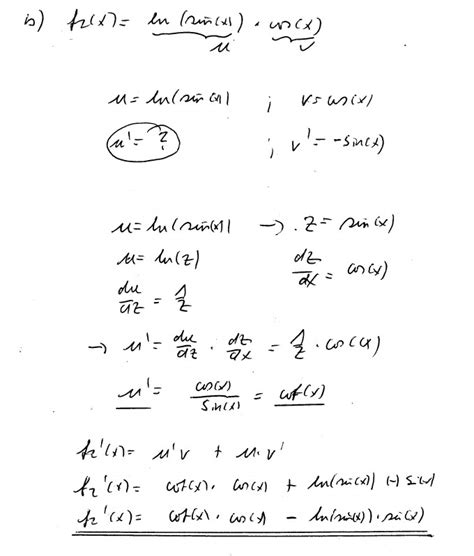 b) f₂(x) = ln(sin(x)) · cos(x)
u v
u = ln(sin(x)) ; v = cos(x)
u' = ? ; v' = -sin(x)
u = ln(sin(x)) → . z = sin(x)
u = ln(z) dz/dx = cos(x)
du/dz = 1/z
→ u' = du/dz · dz/dx = 1/z · cos(x)
u' = cos(x)/sin(x) = cot(x)
f₂'(x) = u'v + u·v'
f₂'(x) = cot(x) · cos(x) + ln(sin(x)) (-) sin(x)
f₂'(x) = cot(x) · cos(x) - ln(sin(x)) · sin(x)